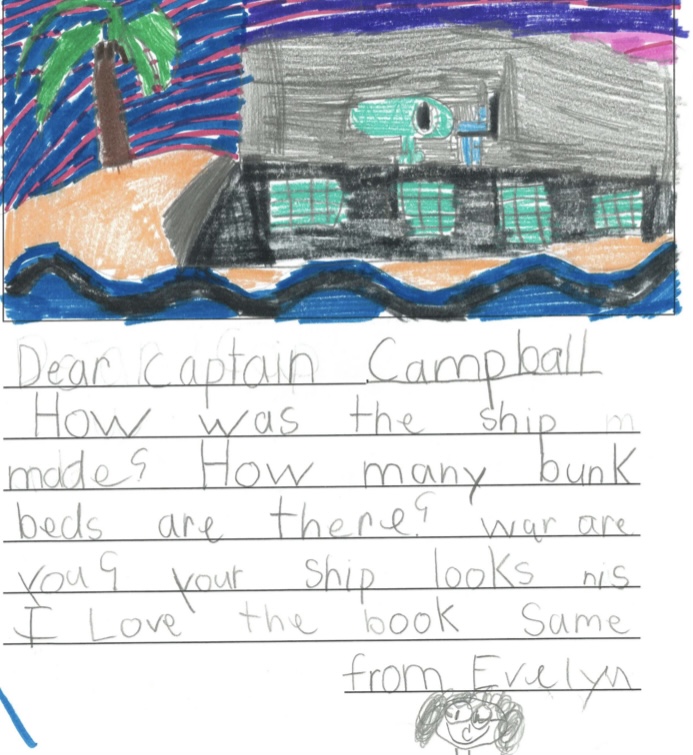 Dear Captain Campball
How was the ship
made?  How many bunk
beds are there? war are
you? your ship looks nis
I Love the book Same
from Evelyn